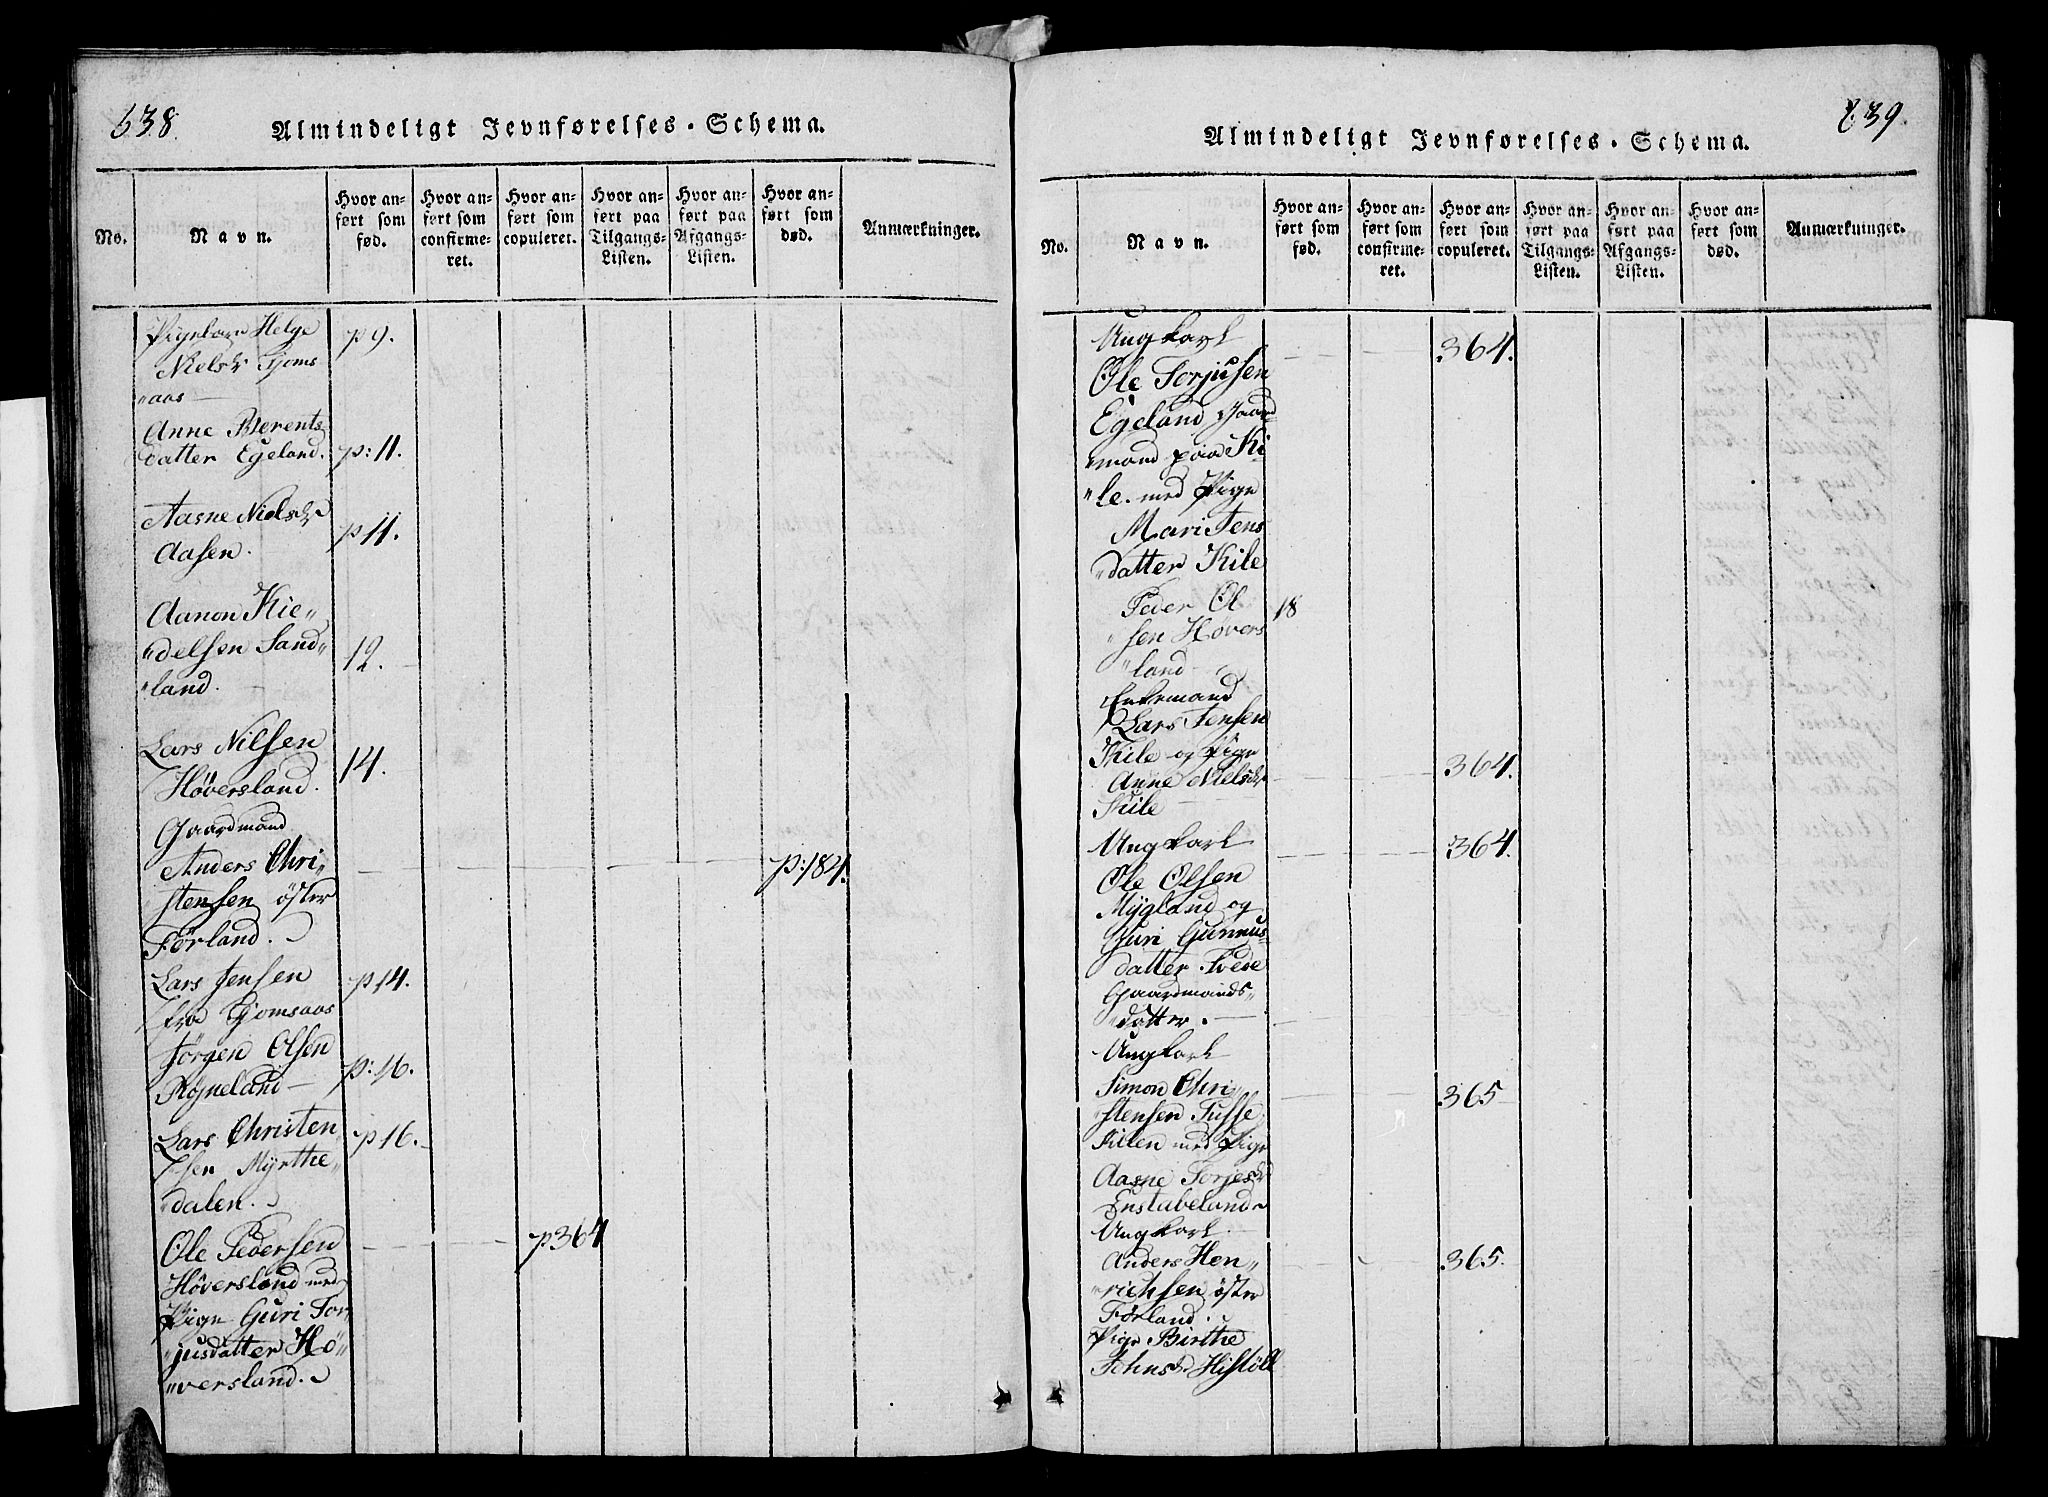 638.
Almindeligt Jevnførelses-Schema.
No.
Navn.
Hvor an-
ført som
fød.
Hvor an-
ført som
confirme-
ret.
Hvor an-
ført som
copuleret.
Hvor an-
ført paa
Tilgangs-
Listen.
Hvor an-
ført paa
Afgangs-
Listen.
Hvor an-
ført som
død.
Anmærkninger.
Pigebarn Helge p 9.
Nielsdr Tjoms
"aas
Anne Berents
datter Egeland. p: 11.
Aasne Nielsdr
Aasen. p 11.
Aanon Kie"
"delsen Sand" 12.
"land.
Lars Nilsen
Höversland. 14.
Gaardmand
Anders Chri" p: 184.
stensen öster
Förland.
Lars Jensen p 14.
fra Tjomsaas
Jörgen Olsen
Rögneland p: 16.
Lars Christen p 16.
sen Myrthe"
"dalen.
Ole Pedersen p 364
Höversland med
Pige Guri Tor"
"jusdatter Hö"
"versland.
639.
Almindeligt Jevnførelses-Schema.
No.
Navn.
Hvor an-
ført som
fød.
Hvor an-
ført som
confirme-
ret.
Hvor an-
ført som
copuleret.
Hvor an-
ført paa
Tilgangs-
Listen.
Hvor an-
ført paa
Afgangs-
Listen.
Hvor an-
ført som
død.
Anmærkninger.
Ungkarl 364.
Ole Torjusen
Egeland Gaard
"mand paa Ki
"le. med Pige
Mari Jens
"datter Kile
Peder Ol 18
"sen Hövers
"land
Enkemand
Lars Jensen
Kile og Pige 364.
Anne Nielsdr
Kile
Ungkarl 364.
Ole Olsen
Mygland og
Guri Gunnus"
datter Tvede
Gaardmands"
"datter.
Ungkarl
Simon Chri" 365
"stensen Tusse
killen med Pige
Aasne Torjesdr
Enstabeland
Ungkarl
Anders Hen" 365.
"richsen öster
Förland.
Pige Birthe
Johnsd. Histöll